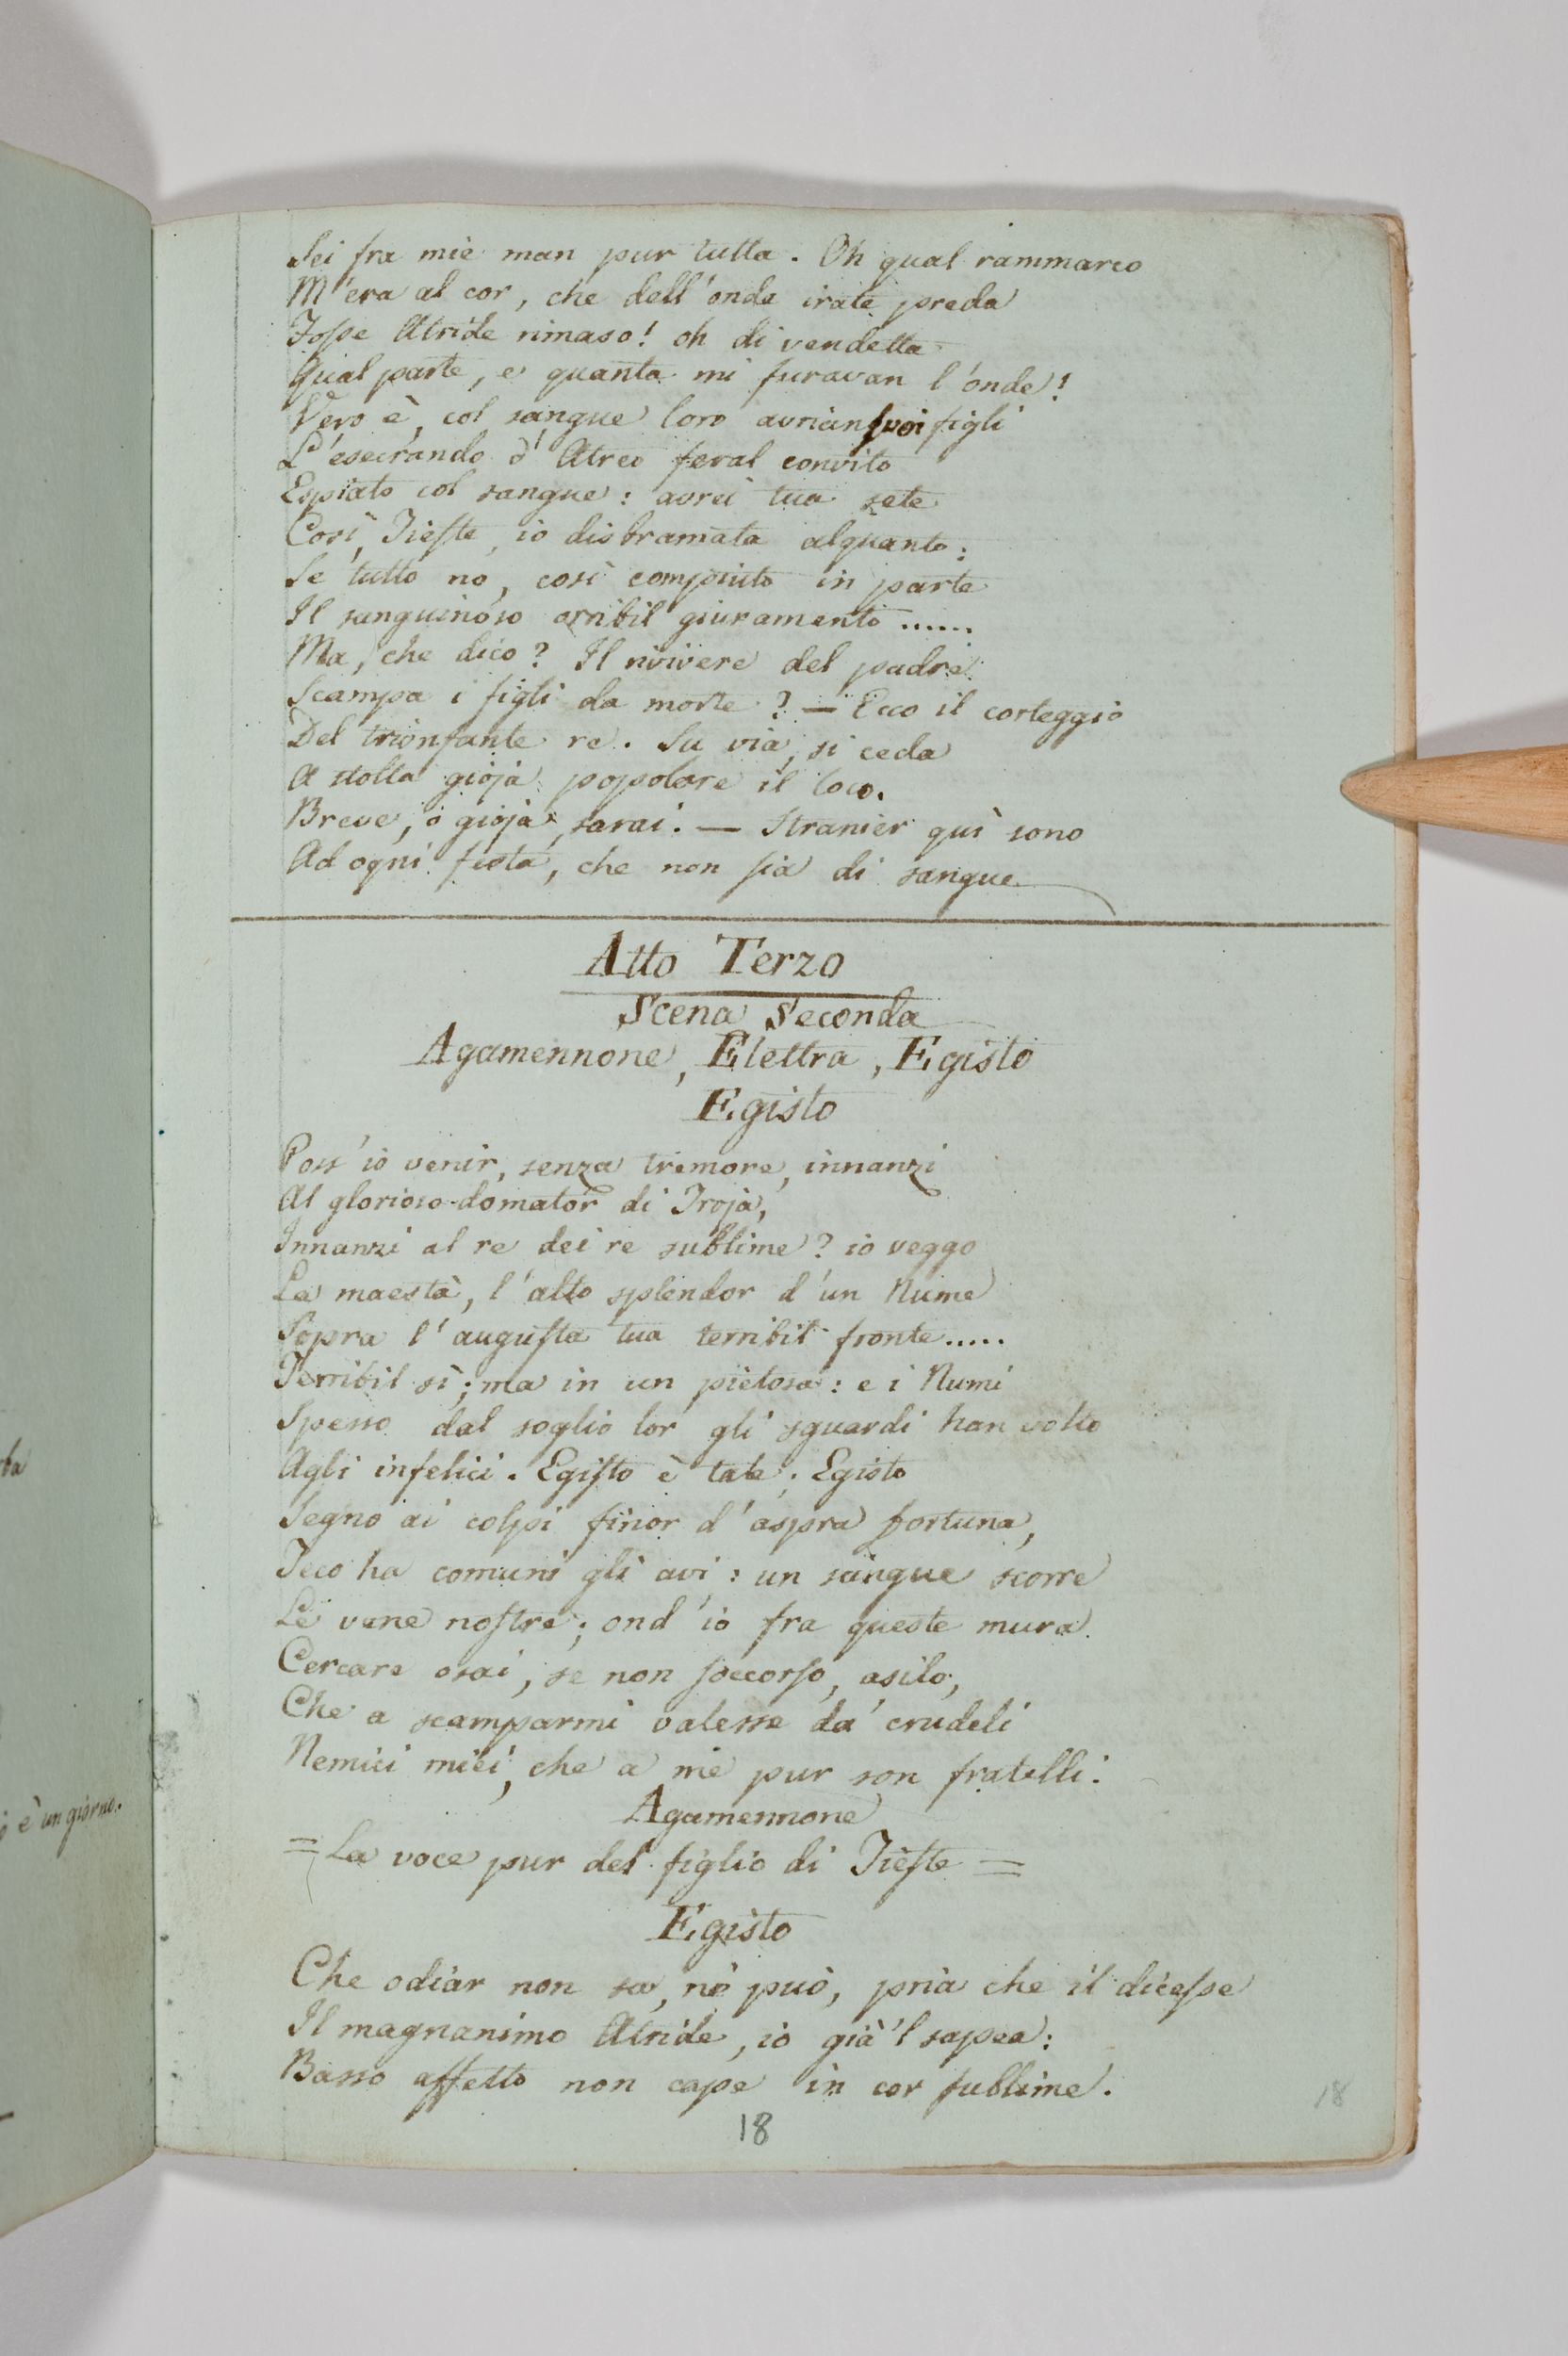 Sei fra mie man pur tutta. Oh qual rammarco
M'era al cor, che dell'onde irate preda
Foſse Atride rimaso! oh di vendetta
Qual parte, e quanta mi furavan l'onde!
Vero è, col sangue loro avrian ſuoi figli
L'esecrando d'Atreo feral convito
Espiato col sangue: avrei tua sete
Così, Tieſte, io disbramata alquanto:
Se tutto no, così compiuto in parte
Il sanguinoso orribil giuramento ......
Ma, che dico? Il rivivere del padre
Scampa i figli da morte? — Ecco il corteggio
Del trionfante re. Su via, si ceda
A stolta gioja popolare il loco.
Breve, o gioja, sarai. — Stranier quì sono
Ad ogni festa, che non ſia di sangue
Atto Terzo
Scena Seconda
Agamennone, Elettra, Egisto
Egisto
Poss'io venir, senza tremore, innanzi
Al glorioso domator di Troja,
Innanzi al re dei re sublime? io veggo
La maestà, l'alto splendor d'un Nume
Sopra l'auguſta tua terribil fronte.....
Terribil sì; ma in un pietosa: e i Numi
Spesso dal soglio lor gli sguardi han volto
Agli infelici. Egiſto è tale; Egisto
Segno ai colpi finor d'aspra fortuna,
Teco ha comuni gli avi: un sangue scorre
Le vene noſtre; ond'io fra queste mura
Cercare osai, se non ſoccorſo, asilo,
Che a scamparmi valesse da' crudeli
Nemici miei, che a me pur son fratelli.
Agamennone
= La voce pur del figlio di Tieſte =
Egisto
Che odiar non sa, nè può, pria che il diceſse
Il magnanimo Atride, io già 'l sapea:
Basso affetto non cape in cor ſublime.
18
18
è un giorno.